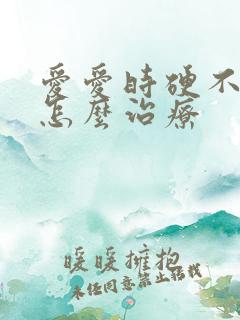 愛愛時硬不
怎麼治療
暖暖擁抱
未经同意禁止转载